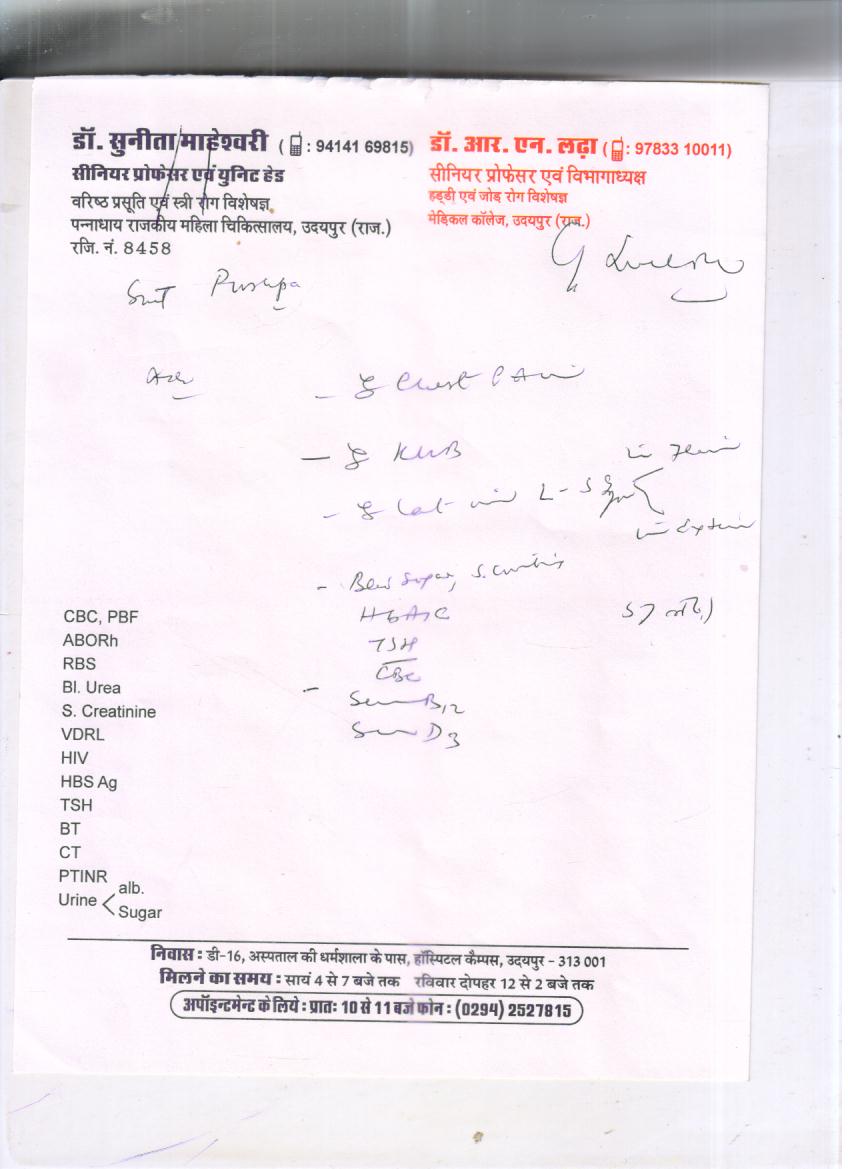 डॉ. सुनीता माहेश्वरी ( : 94141 69815)
सीनियर प्रोफेसर एवं युनिट हेड
वरिष्ठ प्रसूति एवं स्त्री रोग विशेषज्ञ
पन्नाधाय राजकीय महिला चिकित्सालय, उदयपुर (राज.)
रजि. नं. 8458
डॉ. आर. एन. लढ़ा ( : 97833 10011)
सीनियर प्रोफेसर एवं विभागाध्यक्ष
हड्डी एवं जोड़ रोग विशेषज्ञ
मेडिकल कॉलेज, उदयपुर (राज.)
Smt Pushpa
Chest PA
KUB
Lat L-S
Sugar, S.
HbA1C
TSH
CBC
B12
D3
CBC, PBF
ABORh
RBS
Bl. Urea
S. Creatinine
VDRL
HIV
HBS Ag
TSH
BT
CT
PTINR
Urine < alb.
Sugar
निवास : डी-16, अस्पताल की धर्मशाला के पास, हॉस्पिटल कैम्पस, उदयपुर - 313 001
मिलने का समय : सायं 4 से 7 बजे तक रविवार दोपहर 12 से 2 बजे तक
अपॉइन्टमेन्ट के लिये : प्रातः 10 से 11 बजे फोन : (0294) 2527815